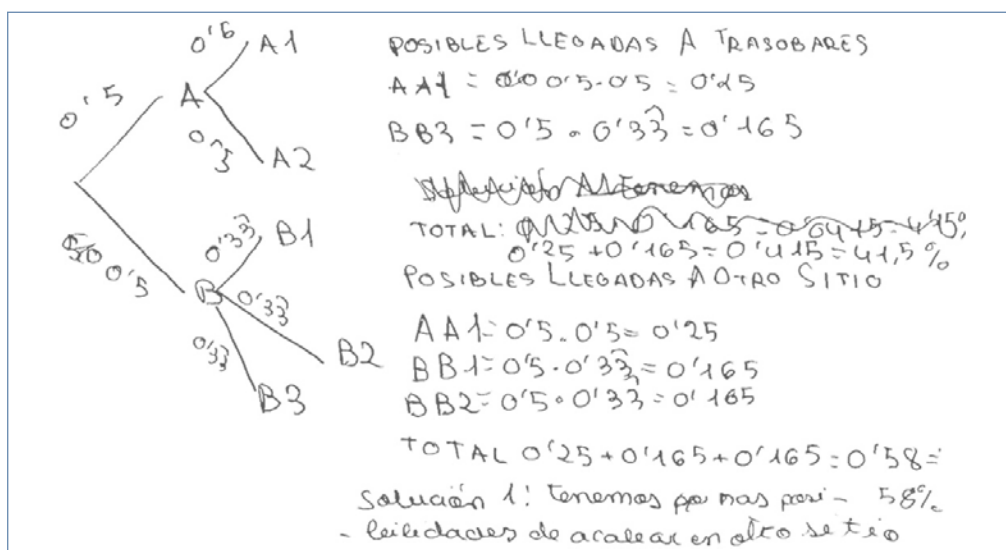 0'5
A
0'5
A1
0'5
A2
0'5
B
0'33
B1
0'33
B2
0'33
B3
POSIBLES LLEGADAS A TRASOBARES
AA1 = 0'5·0'5 = 0'25
BB3 = 0'5 · 0'33 = 0'165
TOTAL:
0'25 + 0'165 = 0'415 = 41,5%
POSIBLES LLEGADAS A OTRO SITIO
AA1 = 0'5·0'5 = 0'25
BB1 = 0'5·0'33 = 0'165
BB2 = 0'5·0'33 = 0'165
TOTAL 0'25 + 0'165 + 0'165 = 0'58 =
58%
Solución 1: tenemos mas posi-
- bilidades de acabar en otro sitio